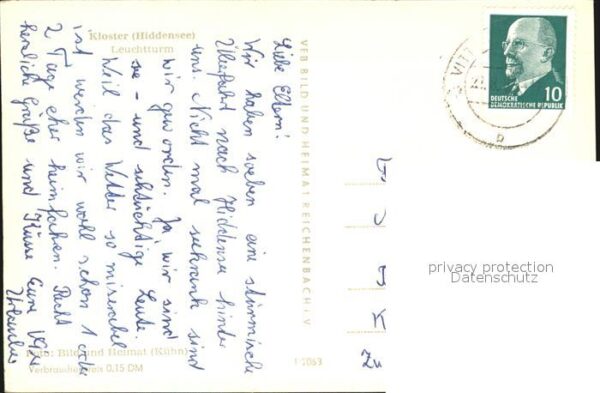 Kloster (Hiddensee)
Leuchtturm
Liebe Eltern!
Wir haben soeben eine stürmische
Überfahrt nach Hiddensee hinter
uns. Nicht mal seekrank sind
wir geworden. Ja wir sind
see- und seetüchtige Leute.
Weil das Wetter so miserabel
ist werden wir wohl schon 1 oder
2 Tage eher heimfahren. Recht
herzliche Grüße und Küsse Eure
Foto: Bild und Heimat (Kühn)
Verbraucherpreis 0,15 DM
VEB BILD UND HEIMAT REICHENBACH i. V.
DEUTSCHE
DEMOKRATISCHE REPUBLIK
10
VITT
b
Zu
privacy protection
Datenschutz